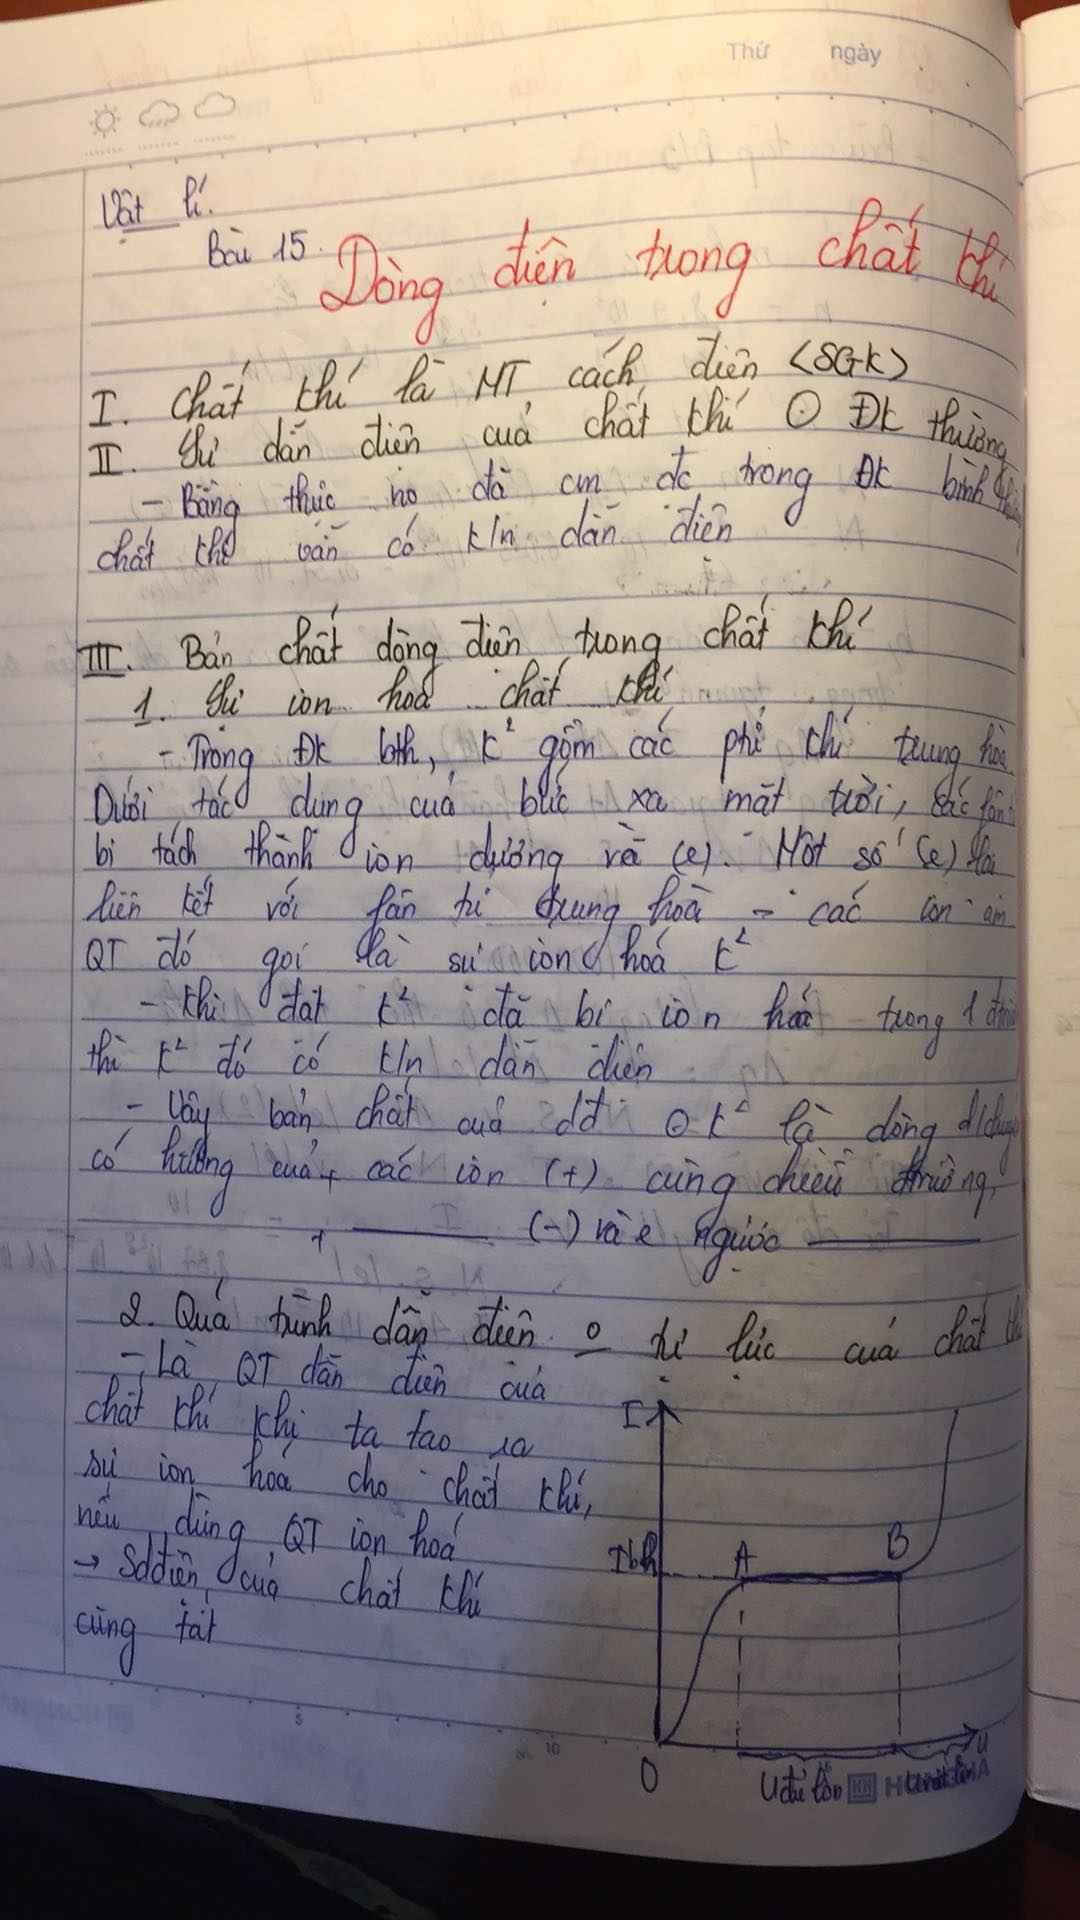 Thứ ngày
Vật lí.
Bài 15.
Dòng điện trong chất khí
I. Chất khí là MT cách điện <SGK>
II. Sự dẫn điện của chất khí ⊙ ĐK thường
- Bằng thực no đã cm đc trong ĐK bình
chất khí vẫn có k/n dẫn điện
III. Bản chất dòng điện trong chất khí
1. Sự ion hoá chất khí
- Trong ĐK bth, k² gồm các phi khí trung hòa
Dưới tác dụng của bức xạ mặt trời, các
bị tách thành ion dương và (e). Một số (e)
liên kết với fân tử trung hoà → các ion âm
QT đó gọi là sự ion hoá k²
- Khi đặt k² đã bị ion hoá trong 1
thì k² đó có k/n dẫn điện
- Vậy bản chất của dđ ⊙ k² là dòng
có hướng của + các ion (+) cùng chiều đtrường,
+ (-) và e ngược
2. Quá trình dẫn điện o tự lực của chất
- Là QT dẫn điện của
chất khí khi ta tạo ra
sự ion hoá cho chất khí,
nếu dừng QT ion hoá
→ Sdđiện của chất khí
cũng tắt
I
Ibh
A
B
O
U
U đủ lớn